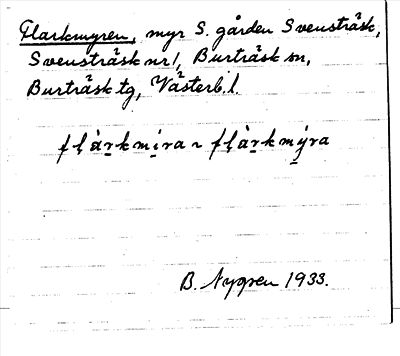 Flarkmyren, myr S. gården Svensträsk,
Svensträsk nr 1, Burträsk sn,
Burträsk tg, Västerb. l.
fḷàṛkmi̤ra ~ fḷàṛkmý̤ra
B. Nygren 1933.